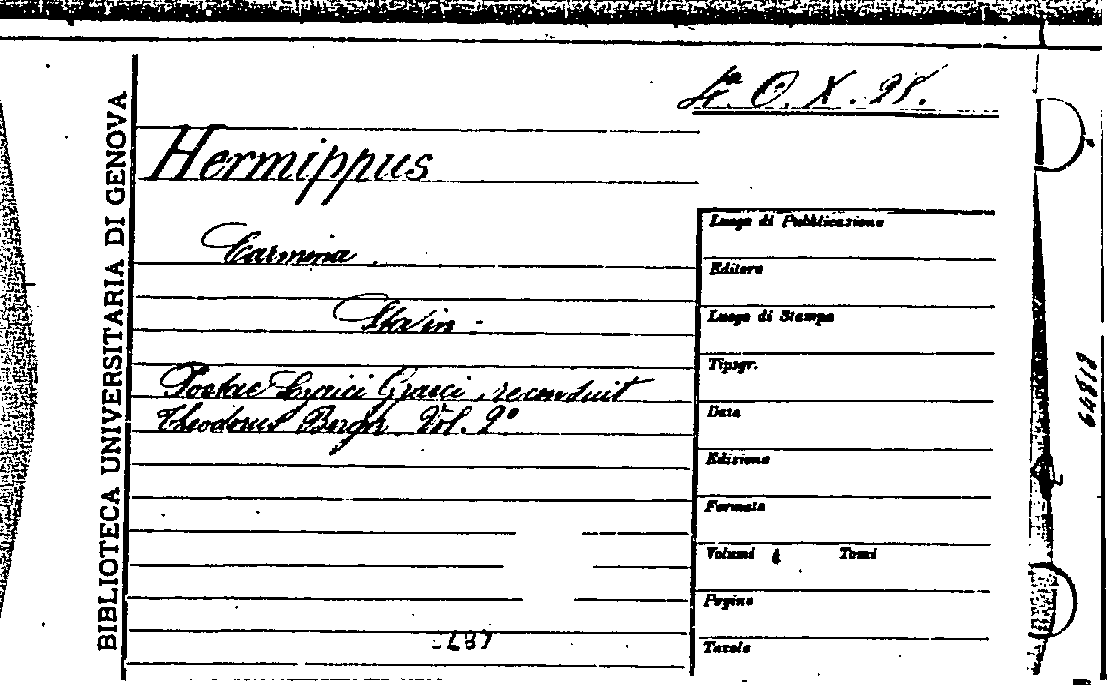 BIBLIOTECA UNIVERSITARIA DI GENOVA
Sa. O. X. 28.
Hermippus
Carmina.
Sta in:
Poetae Lyrici Graeci, recensuit
Theodorus Bergk. Vol. 2º
Luogo di Pubblicazione
Editore
Luogo di Stampa
Tipogr.
Data
Edizione
Formato
Volumi Tomi
Pagine
Tavole
487
64818